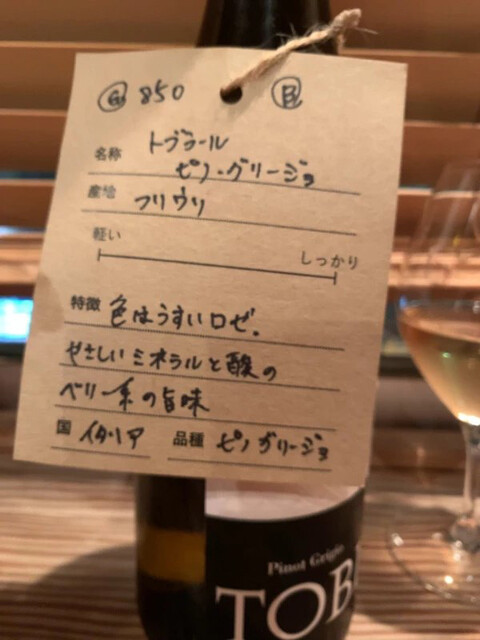 Ⓖ 850 Ⓑ
名称 トブラール
ピノ・グリージョ
産地 フリウリ
軽い しっかり
特徴 色はうすいロゼ.
やさしいミネラルと酸の
ベリー系の旨味
国 イタリア 品種 ピノ グリージョ
Pinot Grigio
TOB